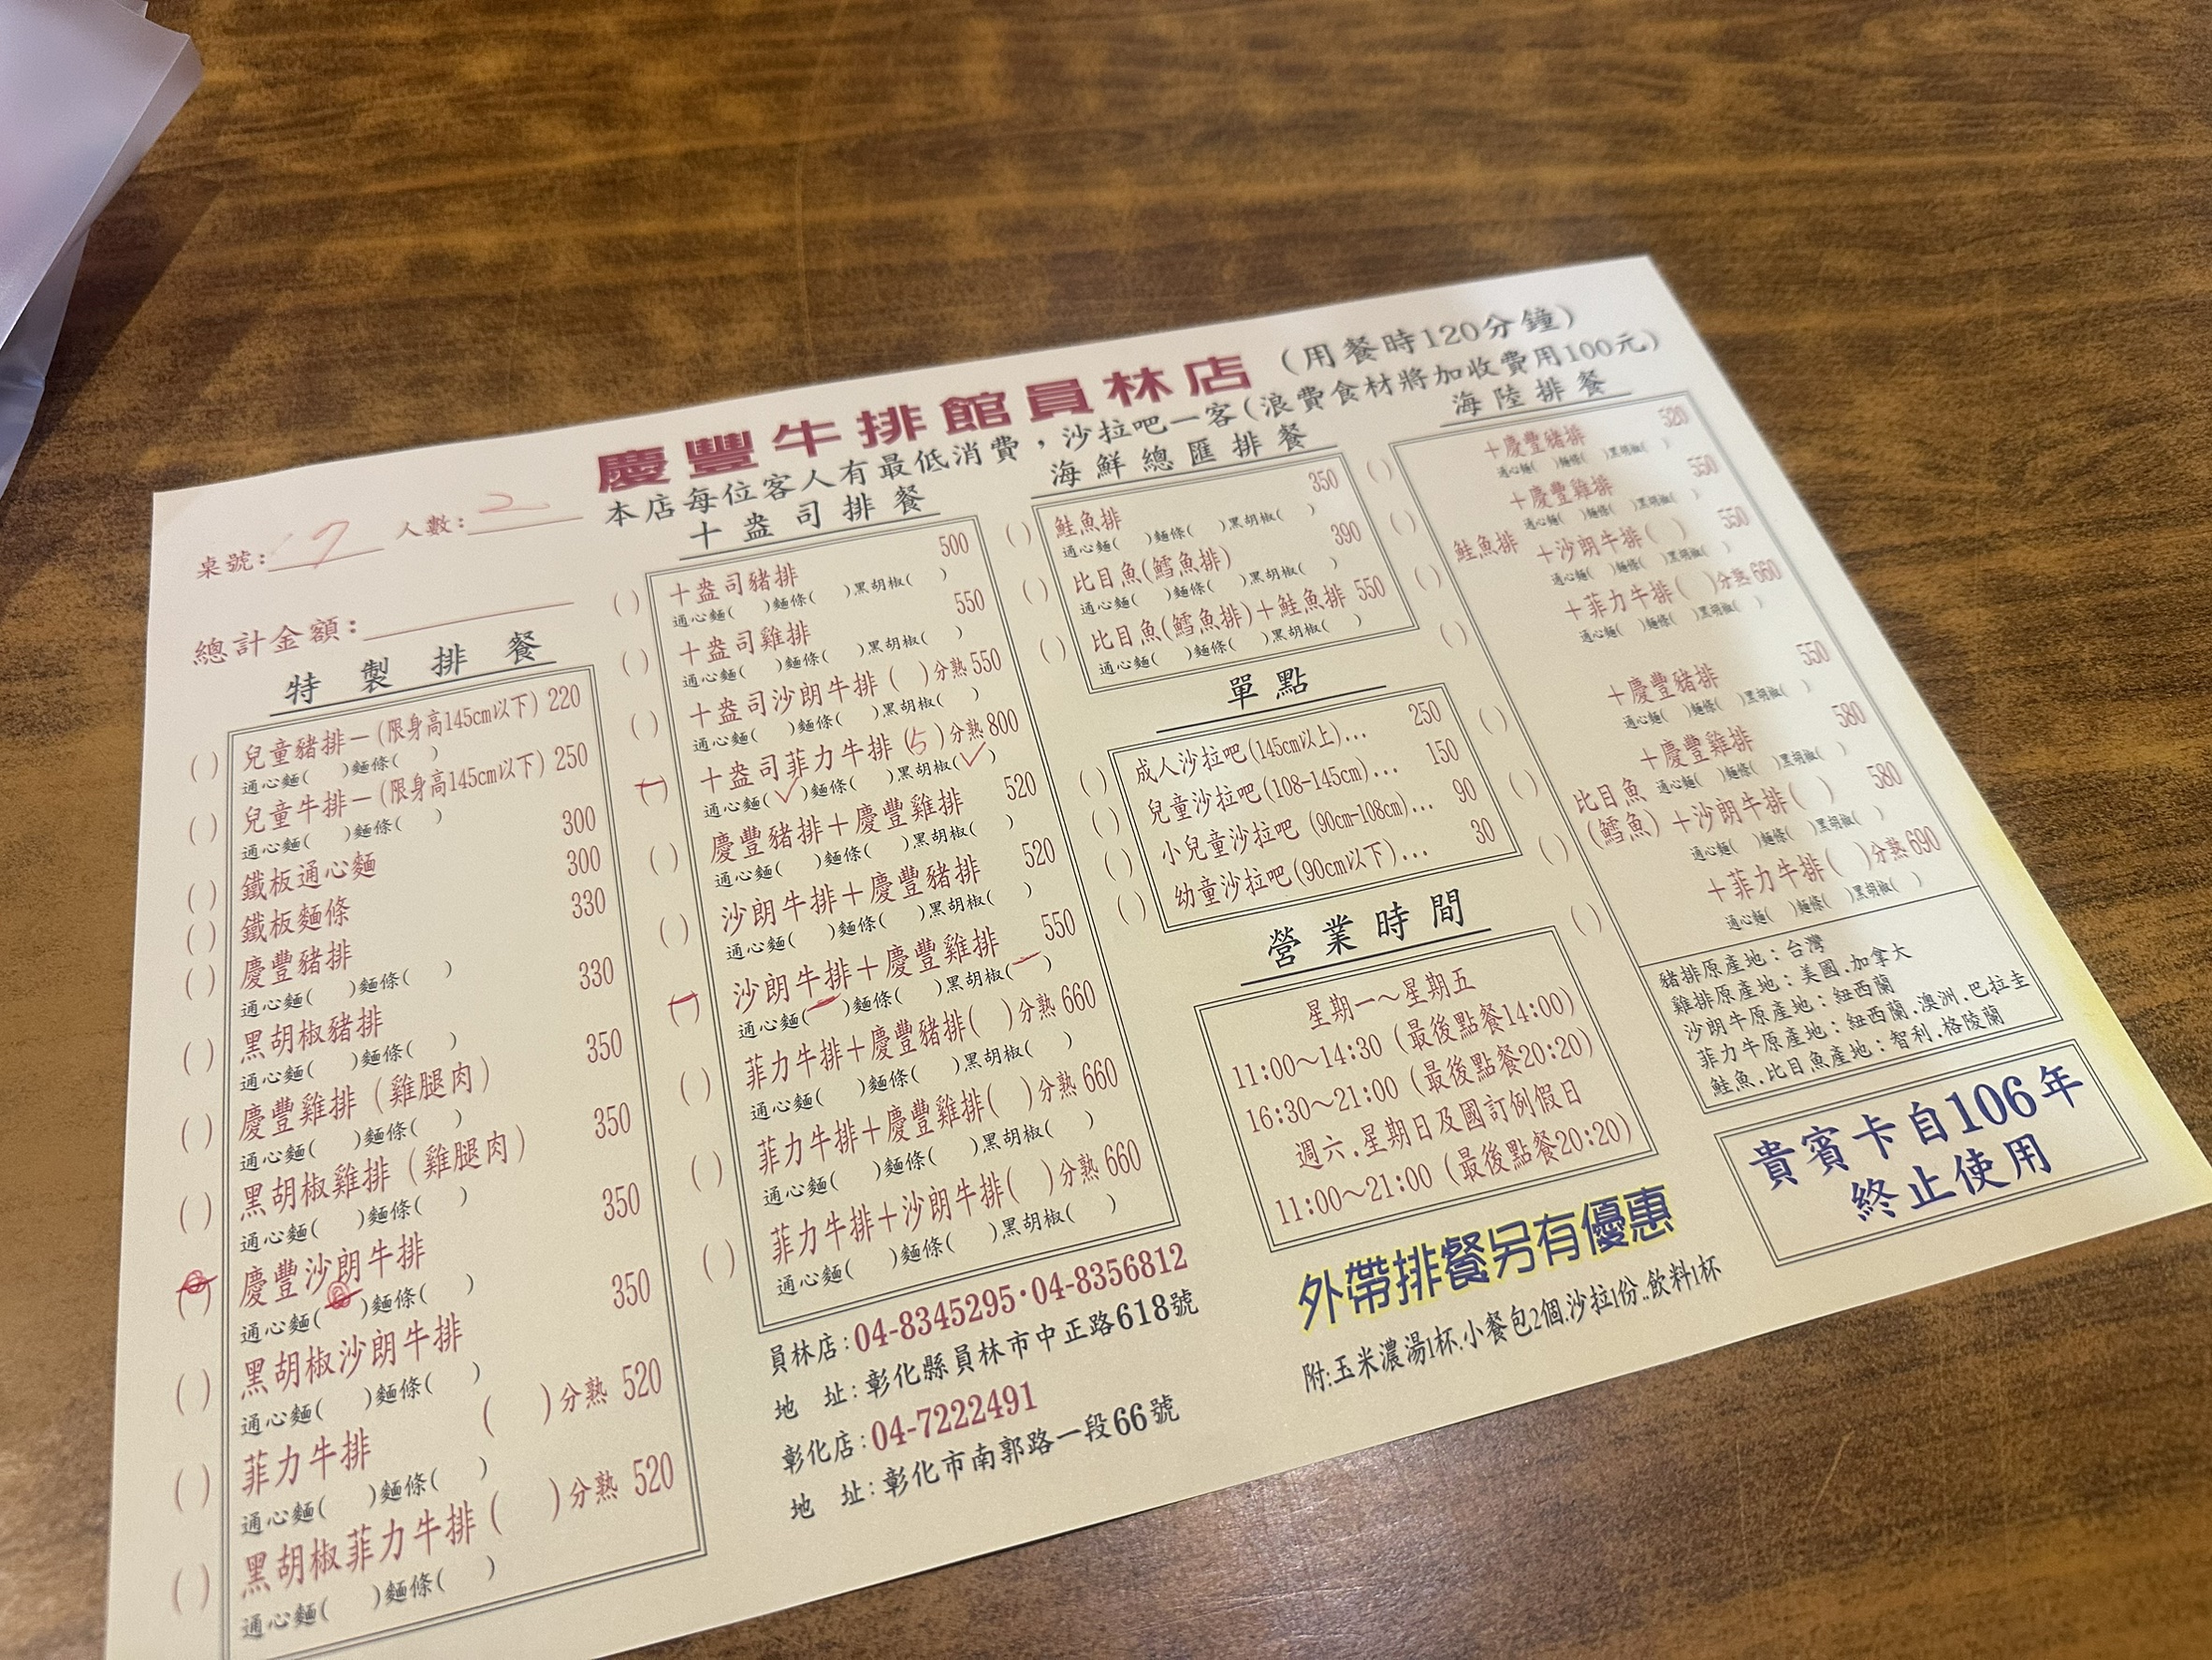 慶豐牛排館員林店(用餐時120分鐘)
本店每位客人有最低消費，沙拉吧一客(浪費食材將加收費用100元)
桌號:17 人數:2
總計金額:
特製排餐
( ) 兒童豬排－(限身高145cm以下) 220
通心麵( )麵條( )
( ) 兒童牛排－(限身高145cm以下) 250
通心麵( )麵條( )
( ) 鐵板通心麵 300
( ) 鐵板麵條 300
( ) 慶豐豬排 330
通心麵( )麵條( )
( ) 黑胡椒豬排 330
通心麵( )麵條( )
( ) 慶豐雞排(雞腿肉) 350
通心麵( )麵條( )
( ) 黑胡椒雞排(雞腿肉) 350
通心麵( )麵條( )
( ) 慶豐沙朗牛排 350
通心麵( )麵條( )
( ) 黑胡椒沙朗牛排 350
通心麵( )麵條( )
( ) 菲力牛排 ( )分熟 520
通心麵( )麵條( )
( ) 黑胡椒菲力牛排( )分熟 520
通心麵( )麵條( )
十盎司排餐
( ) 十盎司豬排 500
通心麵( )麵條( )黑胡椒( )
( ) 十盎司雞排 550
通心麵( )麵條( )黑胡椒( )
( ) 十盎司沙朗牛排( )分熟 550
通心麵( )麵條( )黑胡椒( )
(一) 十盎司菲力牛排(5)分熟 800
通心麵(✓)麵條( )黑胡椒(✓)
( ) 慶豐豬排＋慶豐雞排 520
通心麵( )麵條( )黑胡椒( )
( ) 沙朗牛排＋慶豐豬排 520
通心麵( )麵條( )黑胡椒( )
(一) 沙朗牛排＋慶豐雞排 550
通心麵(一)麵條( )黑胡椒(一)
( ) 菲力牛排＋慶豐豬排( )分熟 660
通心麵( )麵條( )黑胡椒( )
( ) 菲力牛排＋慶豐雞排( )分熟 660
通心麵( )麵條( )黑胡椒( )
( ) 菲力牛排＋沙朗牛排( )分熟 660
通心麵( )麵條( )黑胡椒( )
員林店:04-8345295·04-8356812
地 址:彰化縣員林市中正路618號
彰化店:04-7222491
地 址:彰化市南郭路一段66號
海鮮總匯排餐
( ) 鮭魚排 350
通心麵( )麵條( )黑胡椒( )
( ) 比目魚(鱈魚排) 390
通心麵( )麵條( )黑胡椒( )
( ) 比目魚(鱈魚排)＋鮭魚排 550
通心麵( )麵條( )黑胡椒( )
單點
( ) 成人沙拉吧(145cm以上)... 250
( ) 兒童沙拉吧(108-145cm)... 150
( ) 小兒童沙拉吧 (90cm-108cm)... 90
( ) 幼童沙拉吧(90cm以下)... 30
營業時間
星期一～星期五
11:00～14:30 (最後點餐14:00)
16:30～21:00 (最後點餐20:20)
週六.星期日及國訂例假日
11:00～21:00 (最後點餐20:20)
外帶排餐另有優惠
附:玉米濃湯1杯.小餐包2個.沙拉1份..飲料1杯
海陸排餐
( ) ＋慶豐豬排 520
通心麵( )麵條( )黑胡椒( )
( ) ＋慶豐雞排 550
通心麵( )麵條( )黑胡椒( )
( ) 鮭魚排 ＋沙朗牛排( ) 550
通心麵( )麵條( )黑胡椒( )
( ) ＋菲力牛排( )分熟 660
通心麵( )麵條( )黑胡椒( )
( ) ＋慶豐豬排 550
通心麵( )麵條( )黑胡椒( )
( ) ＋慶豐雞排 580
比目魚 通心麵( )麵條( )黑胡椒( )
( ) (鱈魚) ＋沙朗牛排( ) 580
通心麵( )麵條( )黑胡椒( )
( ) ＋菲力牛排( )分熟 690
通心麵( )麵條( )黑胡椒( )
豬排原產地：台灣
雞排原產地：美國.加拿大
沙朗牛原產地：紐西蘭
菲力牛原產地：紐西蘭.澳洲.巴拉圭
鮭魚.比目魚產地：智利.格陵蘭
貴賓卡自106年
終止使用